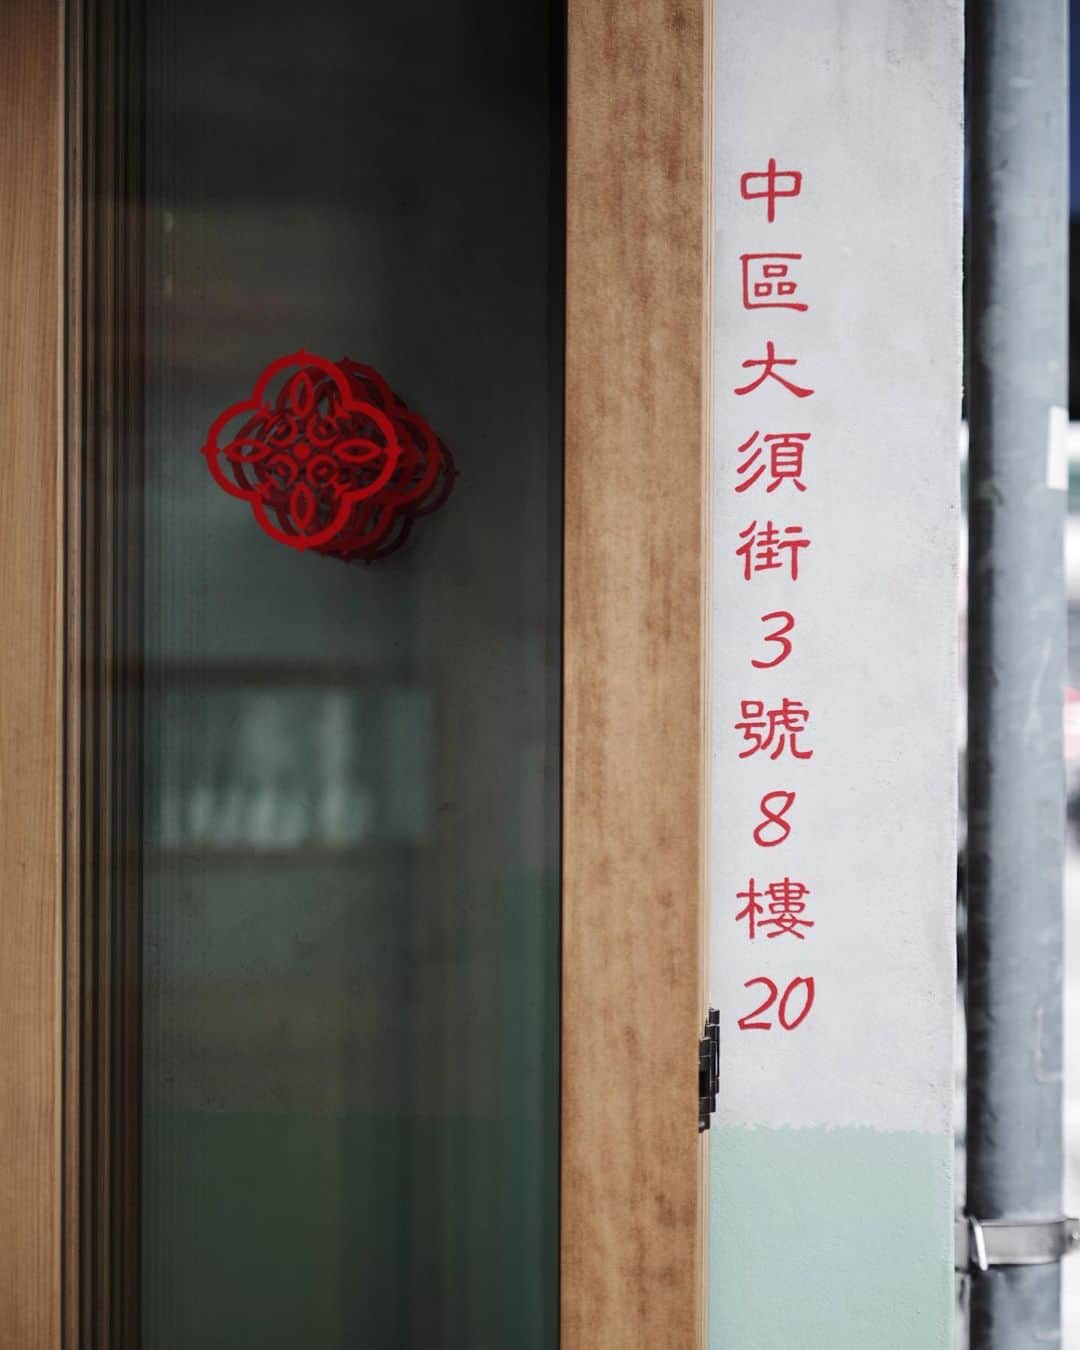 中區大須街3號8樓20